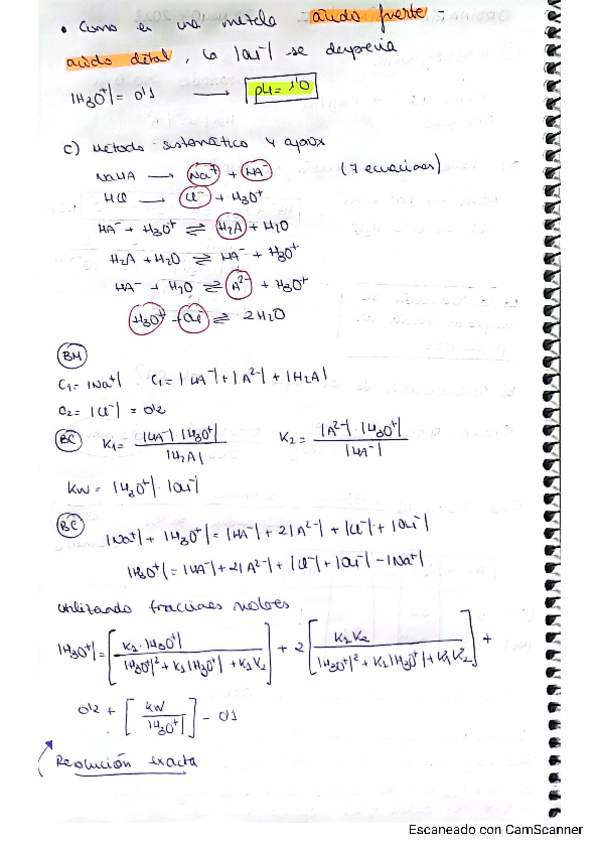 • Como es una mezcla ácido fuerte -
ácido débil, la |OH⁻| se desprecia
|H₃O⁺| = 0'1 ⟶ pH = 1'0
c) Método sistemático y aprox
NaHA ⟶ Na⁺ + HA⁻ (7 ecuaciones)
HCl ⟶ Cl⁻ + H₃O⁺
HA⁻ + H₃O⁺ ⇌ H₂A + H₂O
H₂A + H₂O ⇌ HA⁻ + H₃O⁺
HA⁻ + H₂O ⇌ A²⁻ + H₃O⁺
H₃O⁺ + OH⁻ ⇌ 2H₂O
BM
C₁ = |Na⁺| C₁ = |HA⁻| + |A²⁻| + |H₂A|
C₂ = |Cl⁻| = 0'2
BC K₁ = |HA⁻|·|H₃O⁺| / |H₂A| K₂ = |A²⁻|·|H₃O⁺| / |HA⁻|
KW = |H₃O⁺|·|OH⁻|
BC |Na⁺| + |H₃O⁺| = |HA⁻| + 2|A²⁻| + |Cl⁻| + |OH⁻|
|H₃O⁺| = |HA⁻| + 2|A²⁻| + |Cl⁻| + |OH⁻| - |Na⁺|
Utilizando fracciones molares
|H₃O⁺| = [K₁·|H₃O⁺| / |H₃O⁺|² + K₁|H₃O⁺| + K₁K₂] + 2[K₁K₂ / |H₃O⁺|² + K₁|H₃O⁺| + K₁K₂] +
0'2 + [KW / |H₃O⁺|] - 0'1
Resolución exacta
Escaneado con CamScanner